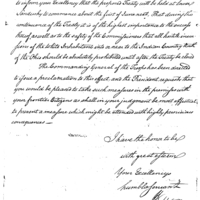 to inform your Excellency that the proposed Treaty will be held at Lower
Sandusky to commence about the first of June next. That during the
continuance of the Treaty it is of the highest importance to its success
itself as well as to the safety of the Commissioners that all hostile incur-
sions of the White Inhabitants into or near to the Indian Country North
of the Ohio should be absolutely prohibited until after the Treaty be closed
The Commanding General of the Troops has been directed
to issue a proclamation to this effect and the President requests that
you would be pleased to take such measures in the premises with
your frontier Citizens as shall in your judgment be most effectual
to prevent a measure which might be attended with highly pernicious
consequences.
I have the honor to be
with great esteem
Your Excellency's
humble servant